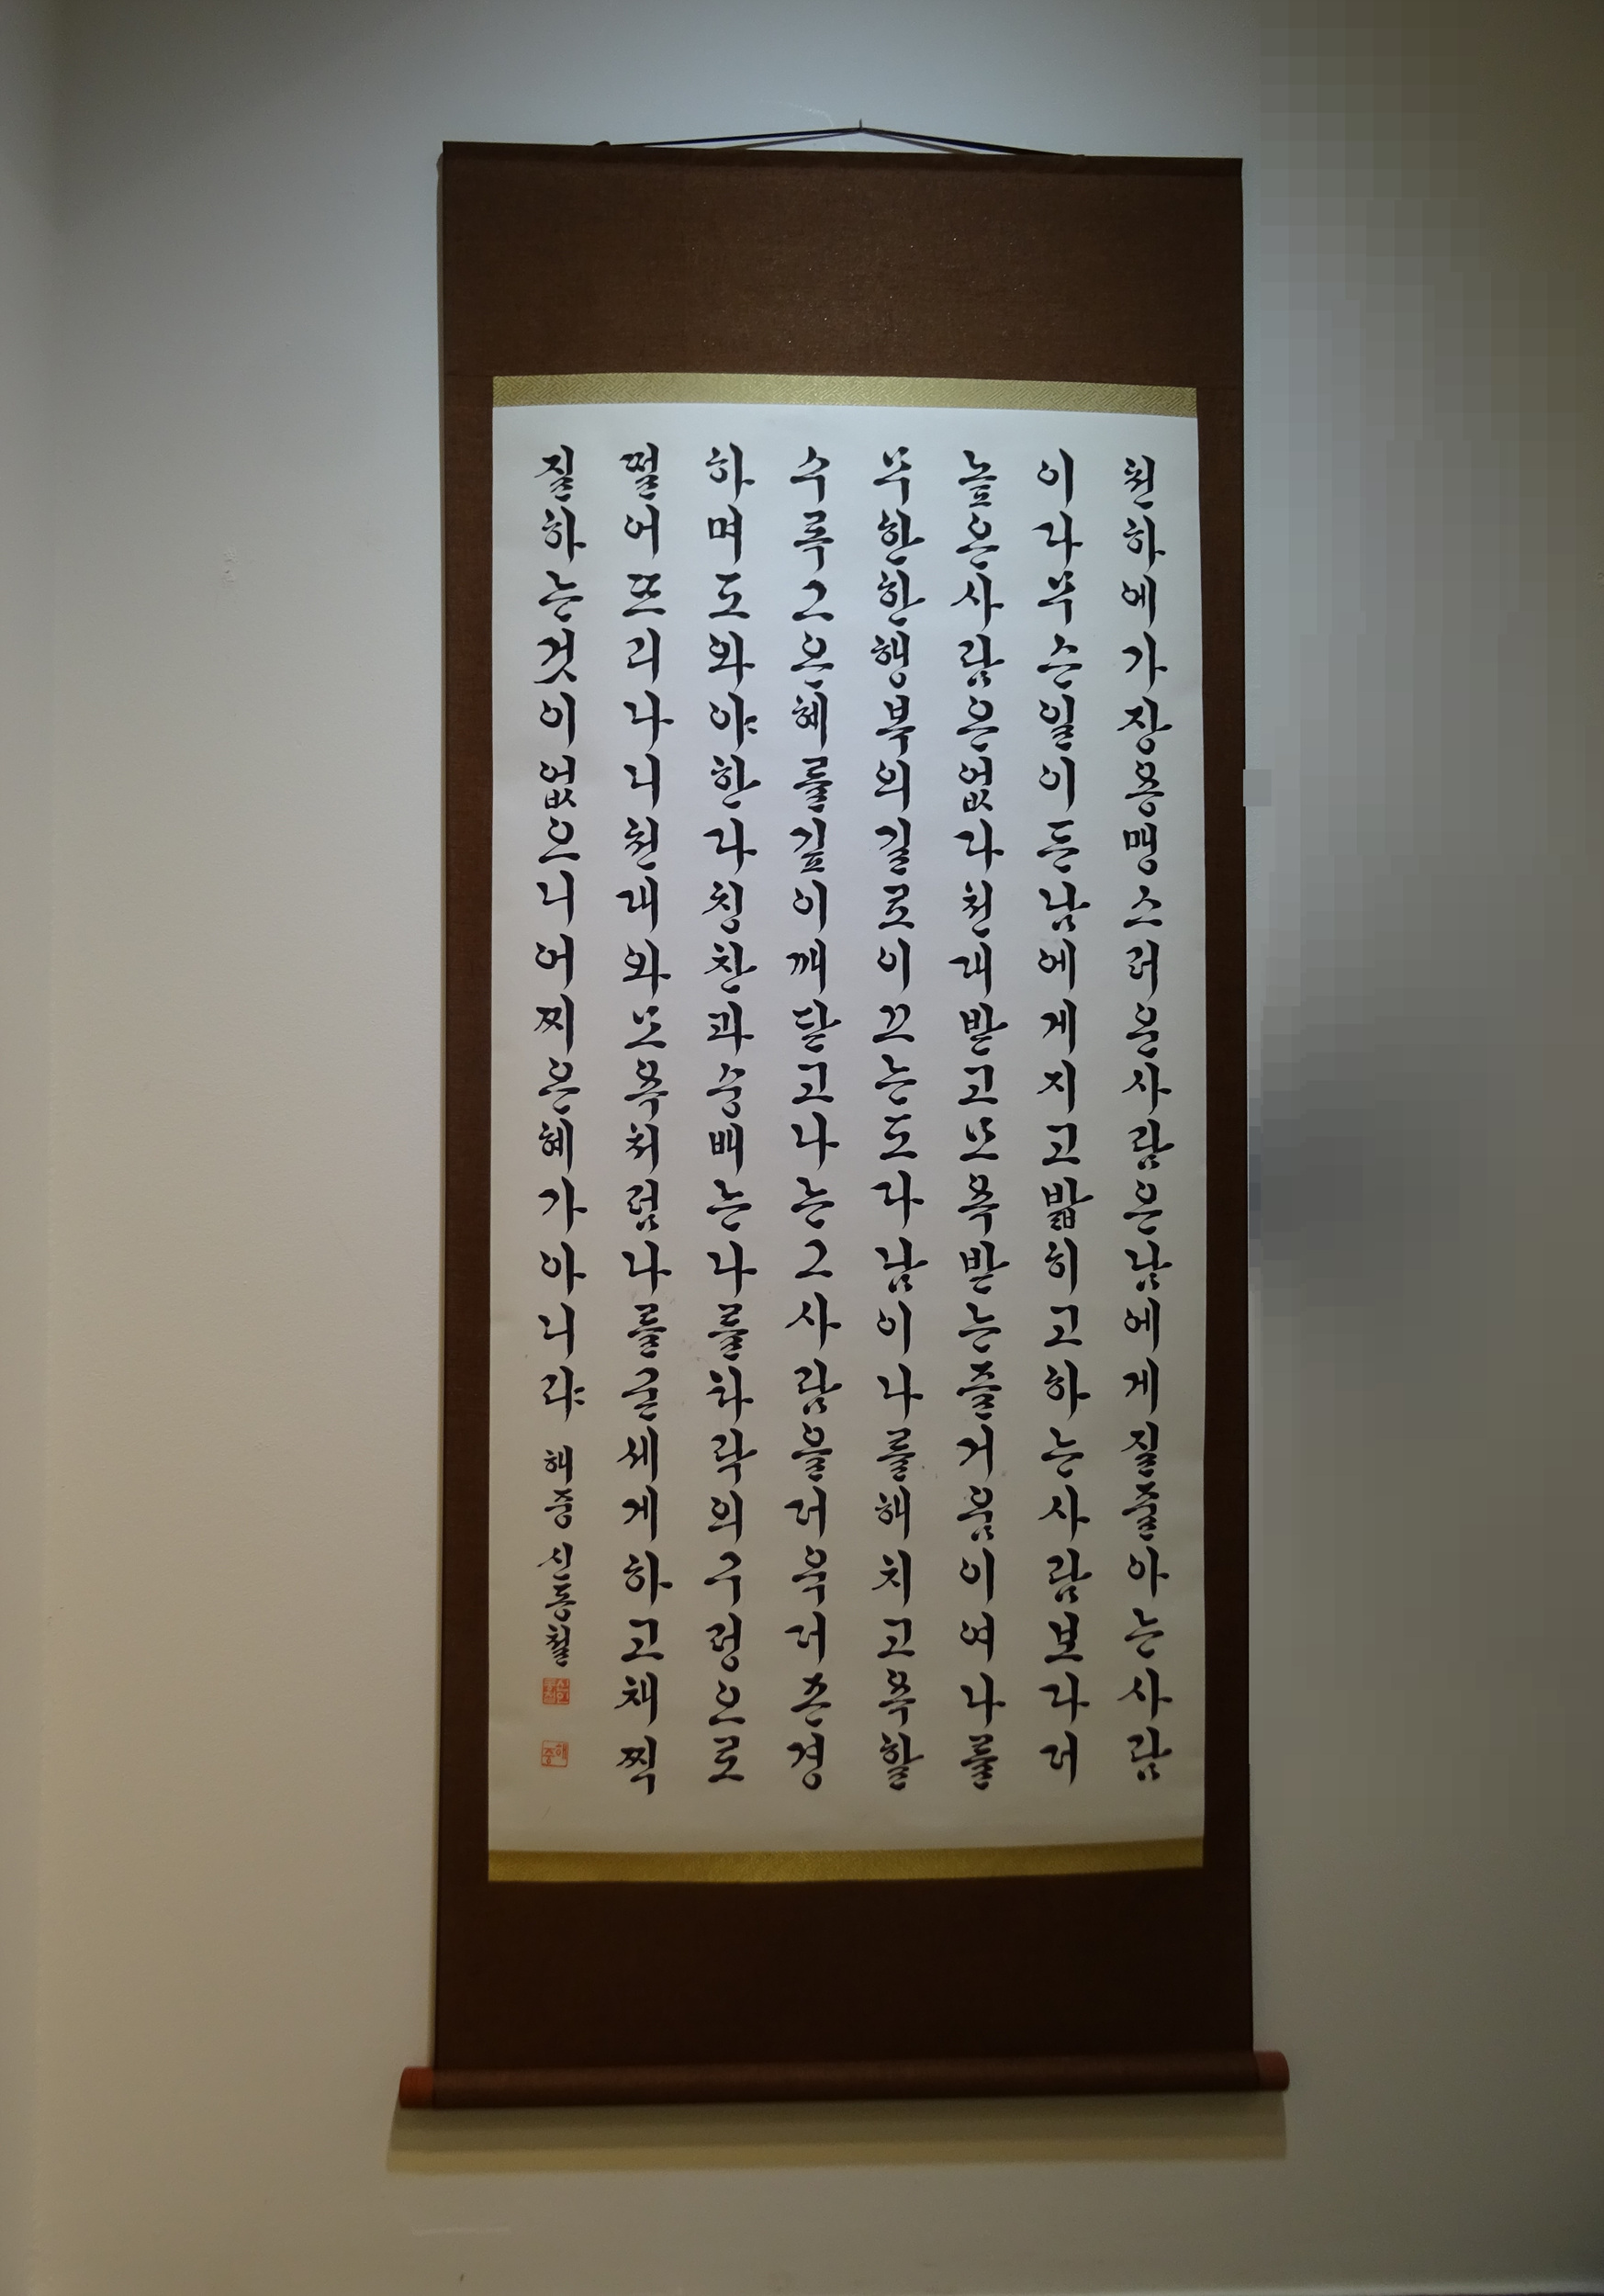 천하에가장용맹스러운사람은남에게질줄아는사람
이라무슨일이든남에게지고밟히고하는사람보다더
높은사람은없다천대받고모욕받는즐거움이여나를
무한한행복의길로이끄는도다남이나를해치고욕할
수록그은혜를깊이깨닫고나는그사람을더욱더존경
하며도와야한다칭찬과숭배는나를타락의구렁으로
떨어뜨리나니천대와모욕처럼나를굳세게하고채찍
질하는것이없으니어찌은혜가아니랴 해중 신동철